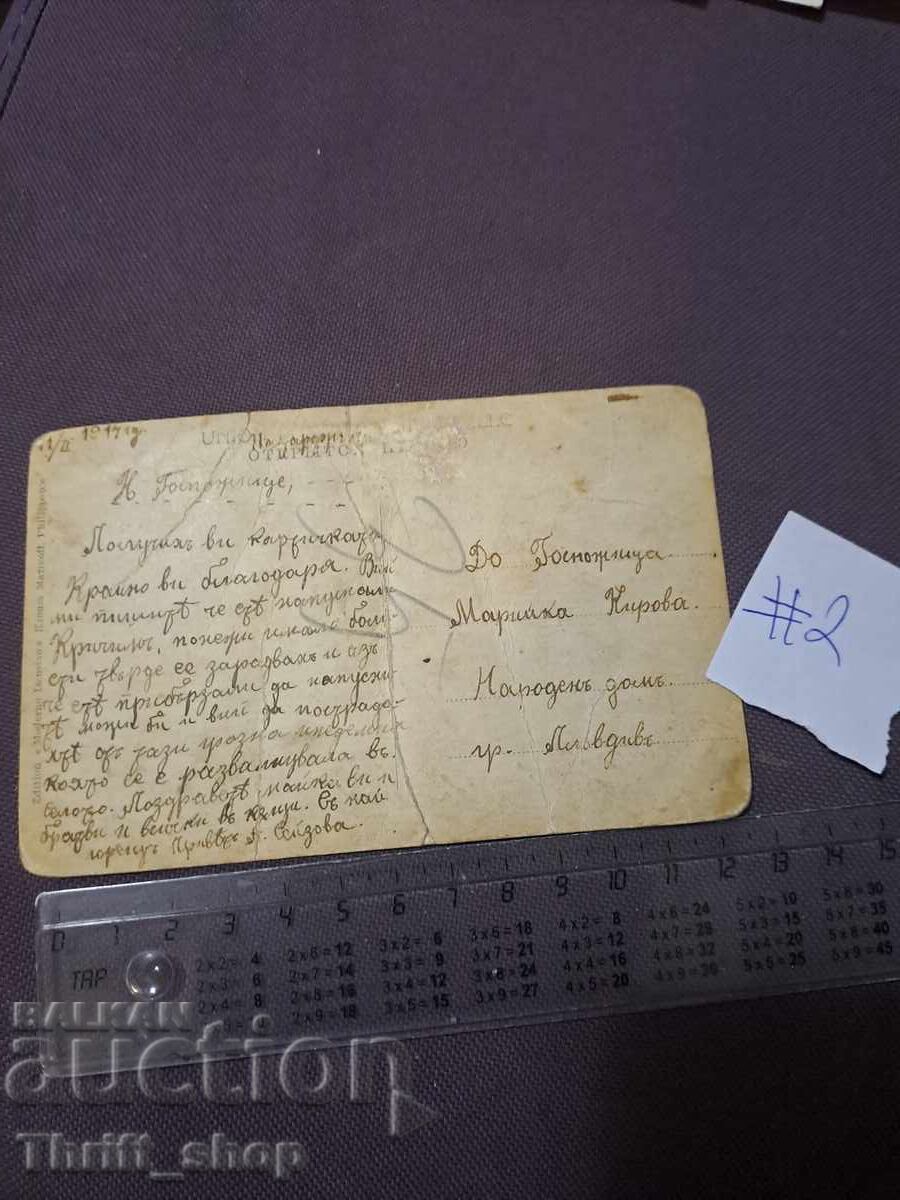 1/II 1917 год.
Н. Госпожице, - - -
Получихъ ви картичката
Крайно ви благодаря. Вий
ми пишитѣ че стѣ напуснали
Кричимъ, понежи имало боле-
сти твърде се зарадвахъ и азъ
че стѣ прибързали да напусни-
тѣ можи би и вий да пострада-
хтѣ отъ тази грозна
която се е развалнувала въ
селото. Поздравѣтѣ майка ви и
братви и всички въ кащи. Съ най
горещъ Привѣтъ
До Госпожица
Марийка Кирова.
Народенъ домъ.
гр. Пловдивъ
#2
0 1 2 3 4 5 6 7 8 9 10 11 12 13 14 15
TAP
2 x 2 = 4 2 x 6 = 12 3 x 2 = 6 3 x 6 = 18 4 x 2 = 8 4 x 6 = 24 5 x 2 = 10 5 x 6 = 30
2 x 3 = 6 2 x 7 = 14 3 x 3 = 9 3 x 7 = 21 4 x 3 = 12 4 x 7 = 28 5 x 3 = 15 5 x 7 = 35
2 x 4 = 8 2 x 8 = 16 3 x 4 = 12 3 x 8 = 24 4 x 4 = 16 4 x 8 = 32 5 x 4 = 20 5 x 8 = 40
2 x 9 = 18 3 x 5 = 15 3 x 9 = 27 4 x 5 = 20 4 x 9 = 36 5 x 5 = 25 5 x 9 = 45
BALKAN
auction
Thrift_shop